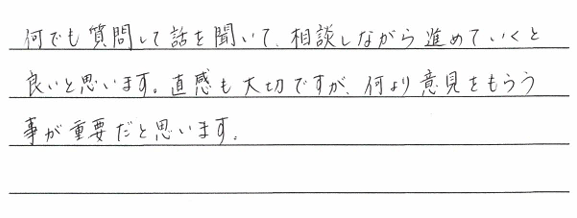 何でも質問して話を聞いて、相談しながら進めていくと
良いと思います。直感も大切ですが、何より意見をもらう
事が重要だと思います。